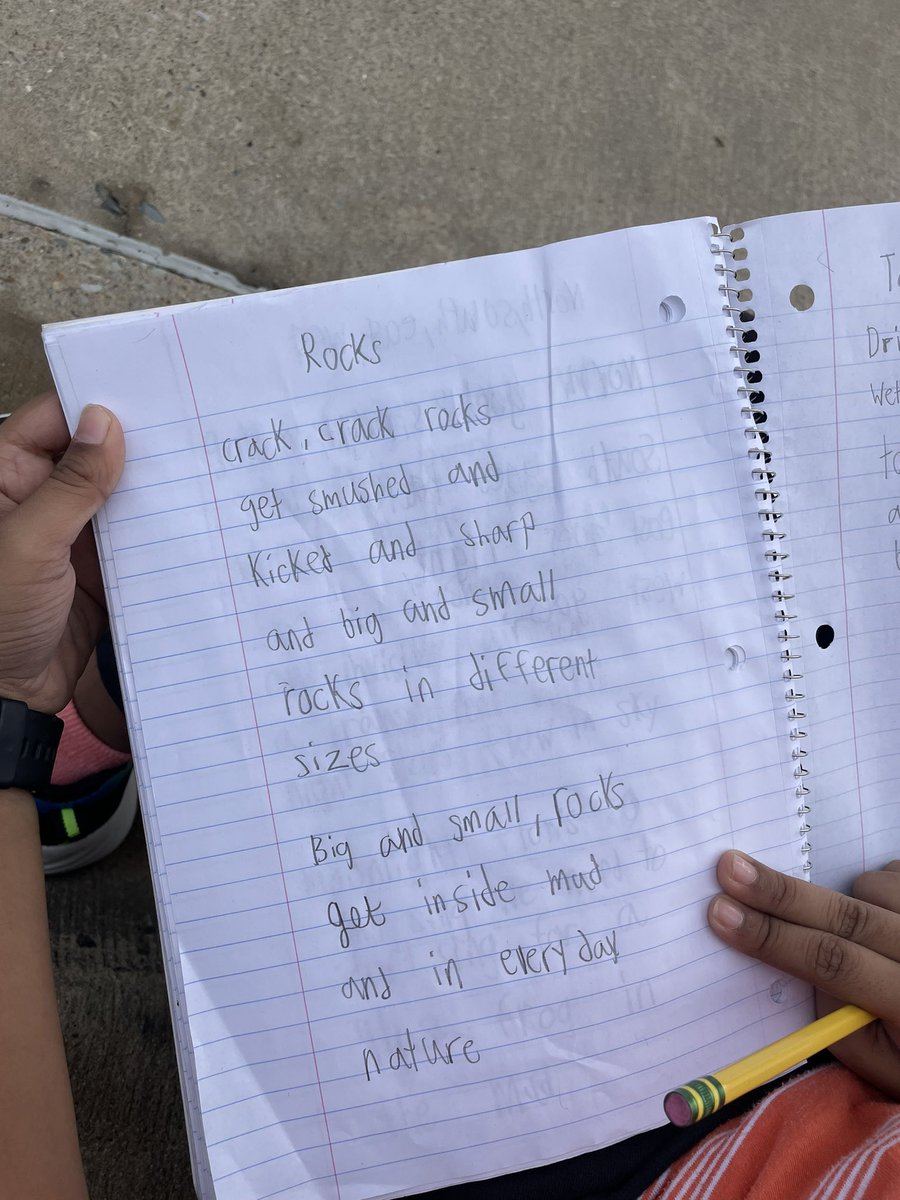 Rocks
crack, crack rocks
get smushed and
Kicked and sharp
and big and small
rocks in different
sizes
Big and small, rocks
get inside mud
and in every day
nature
Wet